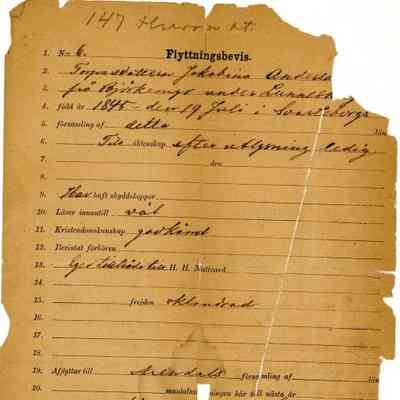 147
1. N:o 6. Flyttningsbevis.
2. Torpardottern Jakobina Anders
3. på Björkängs under
4. född år 1845 den 19 Juli i Svarteborgs
5. församling af detta län
6. Till äktenskap efter utlysning ledig
7. den
8.
9. Har haft skyddskoppor.
10. Läser innantill väl
11. Kristendomskunskap godkänd
12. Bevistat förhören
13. Eger tillträde till H. H. Nattvard.
14.
15. frejden oklandrad
16.
17.
18.
19. Afflyttar till församling af
20. mantalsskrifningen här till nästa år